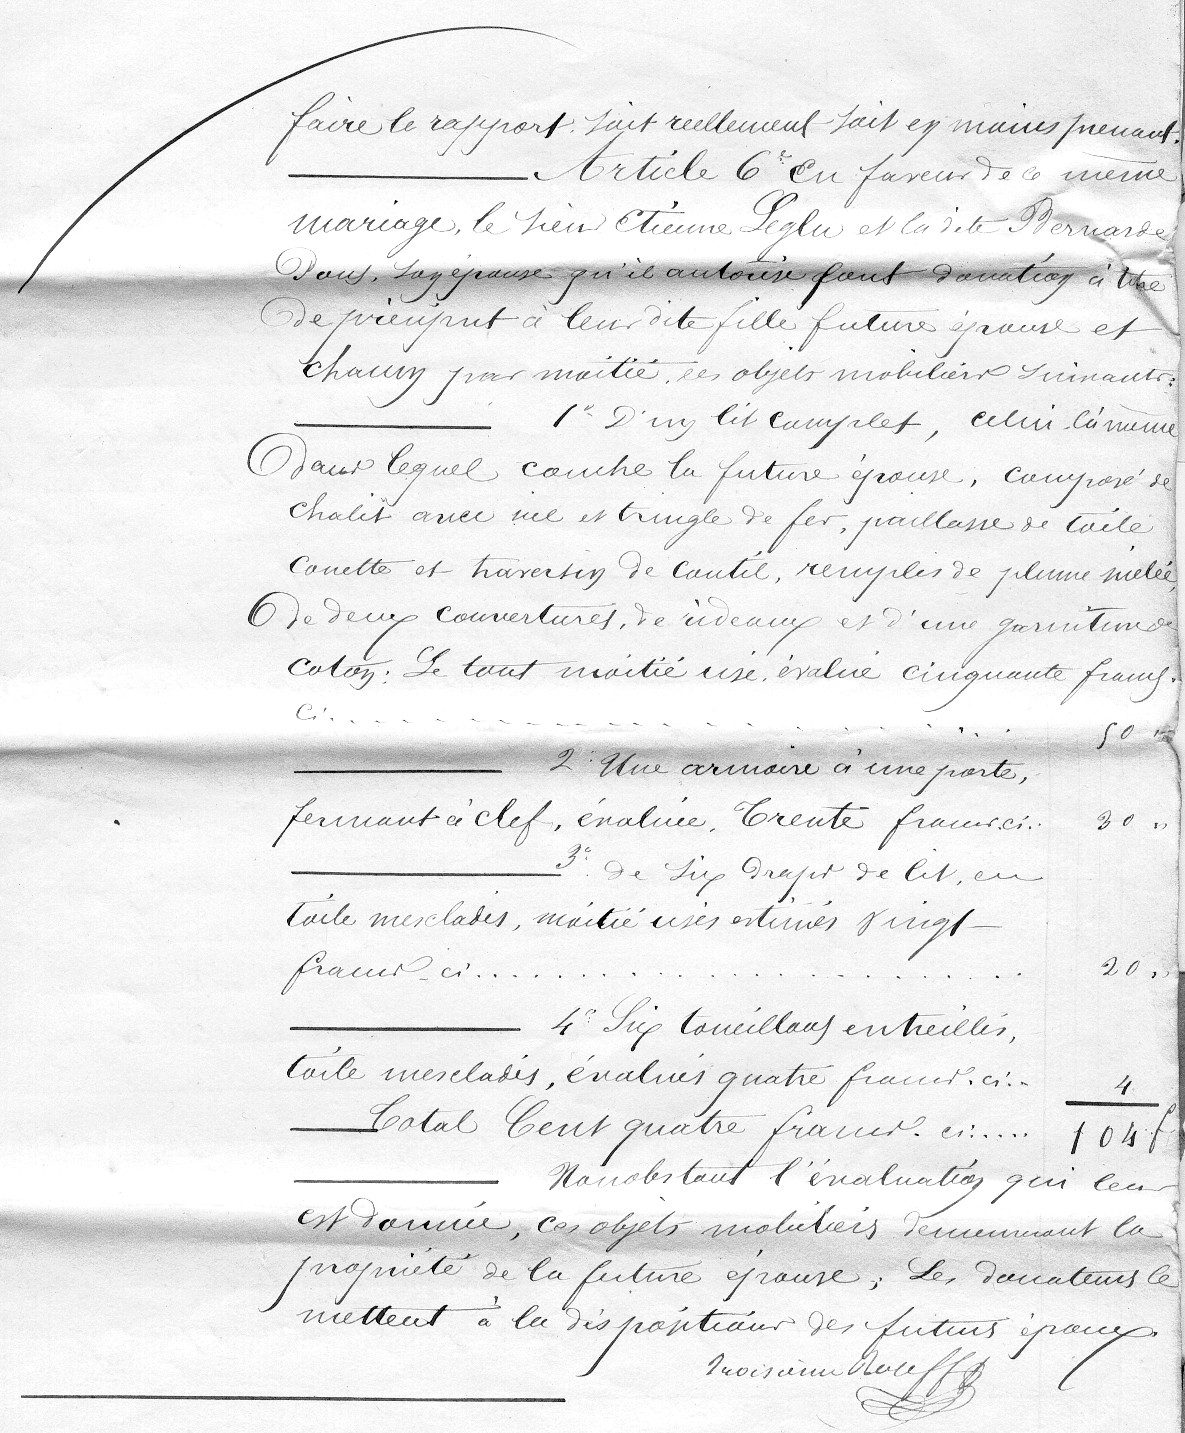 faire le rapport soit réellement soit en moins prenant.
Article 6e En faveur de ce même
mariage, le sieur Etienne Leglu et la dite Bernarde
Pous, son épouse qu'il autorise font donation à titre
De préciput à leur dite fille future épouse et
chacun par moitié, des objets mobiliers suivants:
1o D'un lit complet, celui-là même
Dans lequel couche la future épouse, composé de
chalit avec ciel et tringle de fer, paillasse de toile
couette et traversin de coutil, remplis de plume mêlée,
De deux couvertures, de rideaux et d'une garniture de
coton; Le tout moitié usé, évalué cinquante francs.
ci. . . . . . . . . . . . . . . . . . . . 50 "
2o Une armoire à une porte,
fermant à clef, évaluée, Trente francs. ci.. 30 "
3o de six draps de lit, en
toile mescladis, moitié usés estimés vingt
francs - ci. . . . . . . . . . . . . . . . . . 20 "
4o Six toueillons entreillis,
toile mescladis, évalués quatre francs. ci.. 4
Total Cent quatre francs. ci..... 104 f
Nonobstant l'évaluation qui leur
est donnée, ces objets mobiliers demeureront la
propriété de la future épouse; Les donateurs le
mettent à la disposition des futurs époux.
troisième Rolle